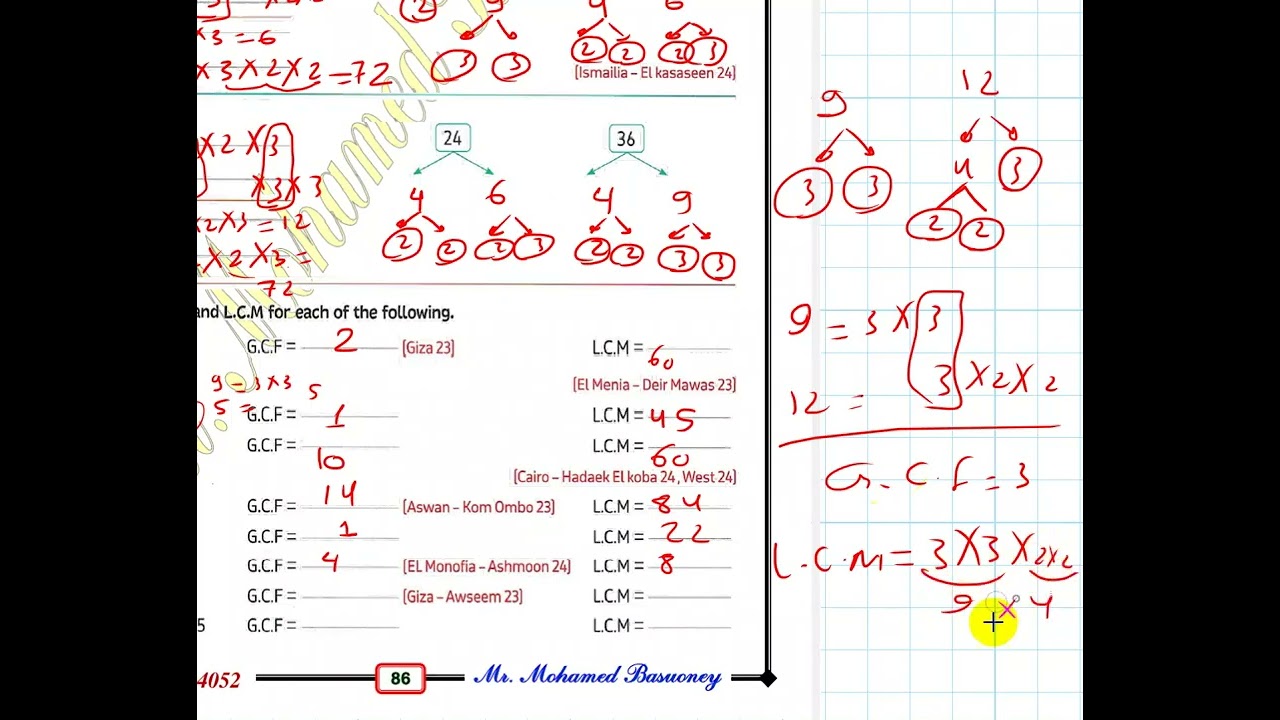 ×3 = 6
×3×2×2 = 72
9
3 3
2 2 2 3
[Ismailia – El kasaseen 24]
×2 ×3
×3×3
×2×3 = 12
×2×3 =
72
24
4 6
2 2 2 3
36
4 9
2 2 3 3
and L.C.M for each of the following.
G.C.F = 2 [Giza 23] L.C.M = 60
[El Menia – Deir Mawas 23]
9 = 3×3
5 = 5
G.C.F = 1 L.C.M = 45
G.C.F = 10 L.C.M = 60
[Cairo – Hadaek El koba 24, West 24]
G.C.F = 14 [Aswan – Kom Ombo 23] L.C.M = 84
G.C.F = 1 L.C.M = 22
G.C.F = 4 [EL Monofia – Ashmoon 24] L.C.M = 8
G.C.F = [Giza – Awseem 23] L.C.M =
5 G.C.F = L.C.M =
4052 86 Mr. Mohamed Basuoney
9 12
3 3 4 3
2 2
9 = 3 × 3
12 = 3 × 2 × 2
G.C.F = 3
L.C.M = 3×3×2×2
9 × 4